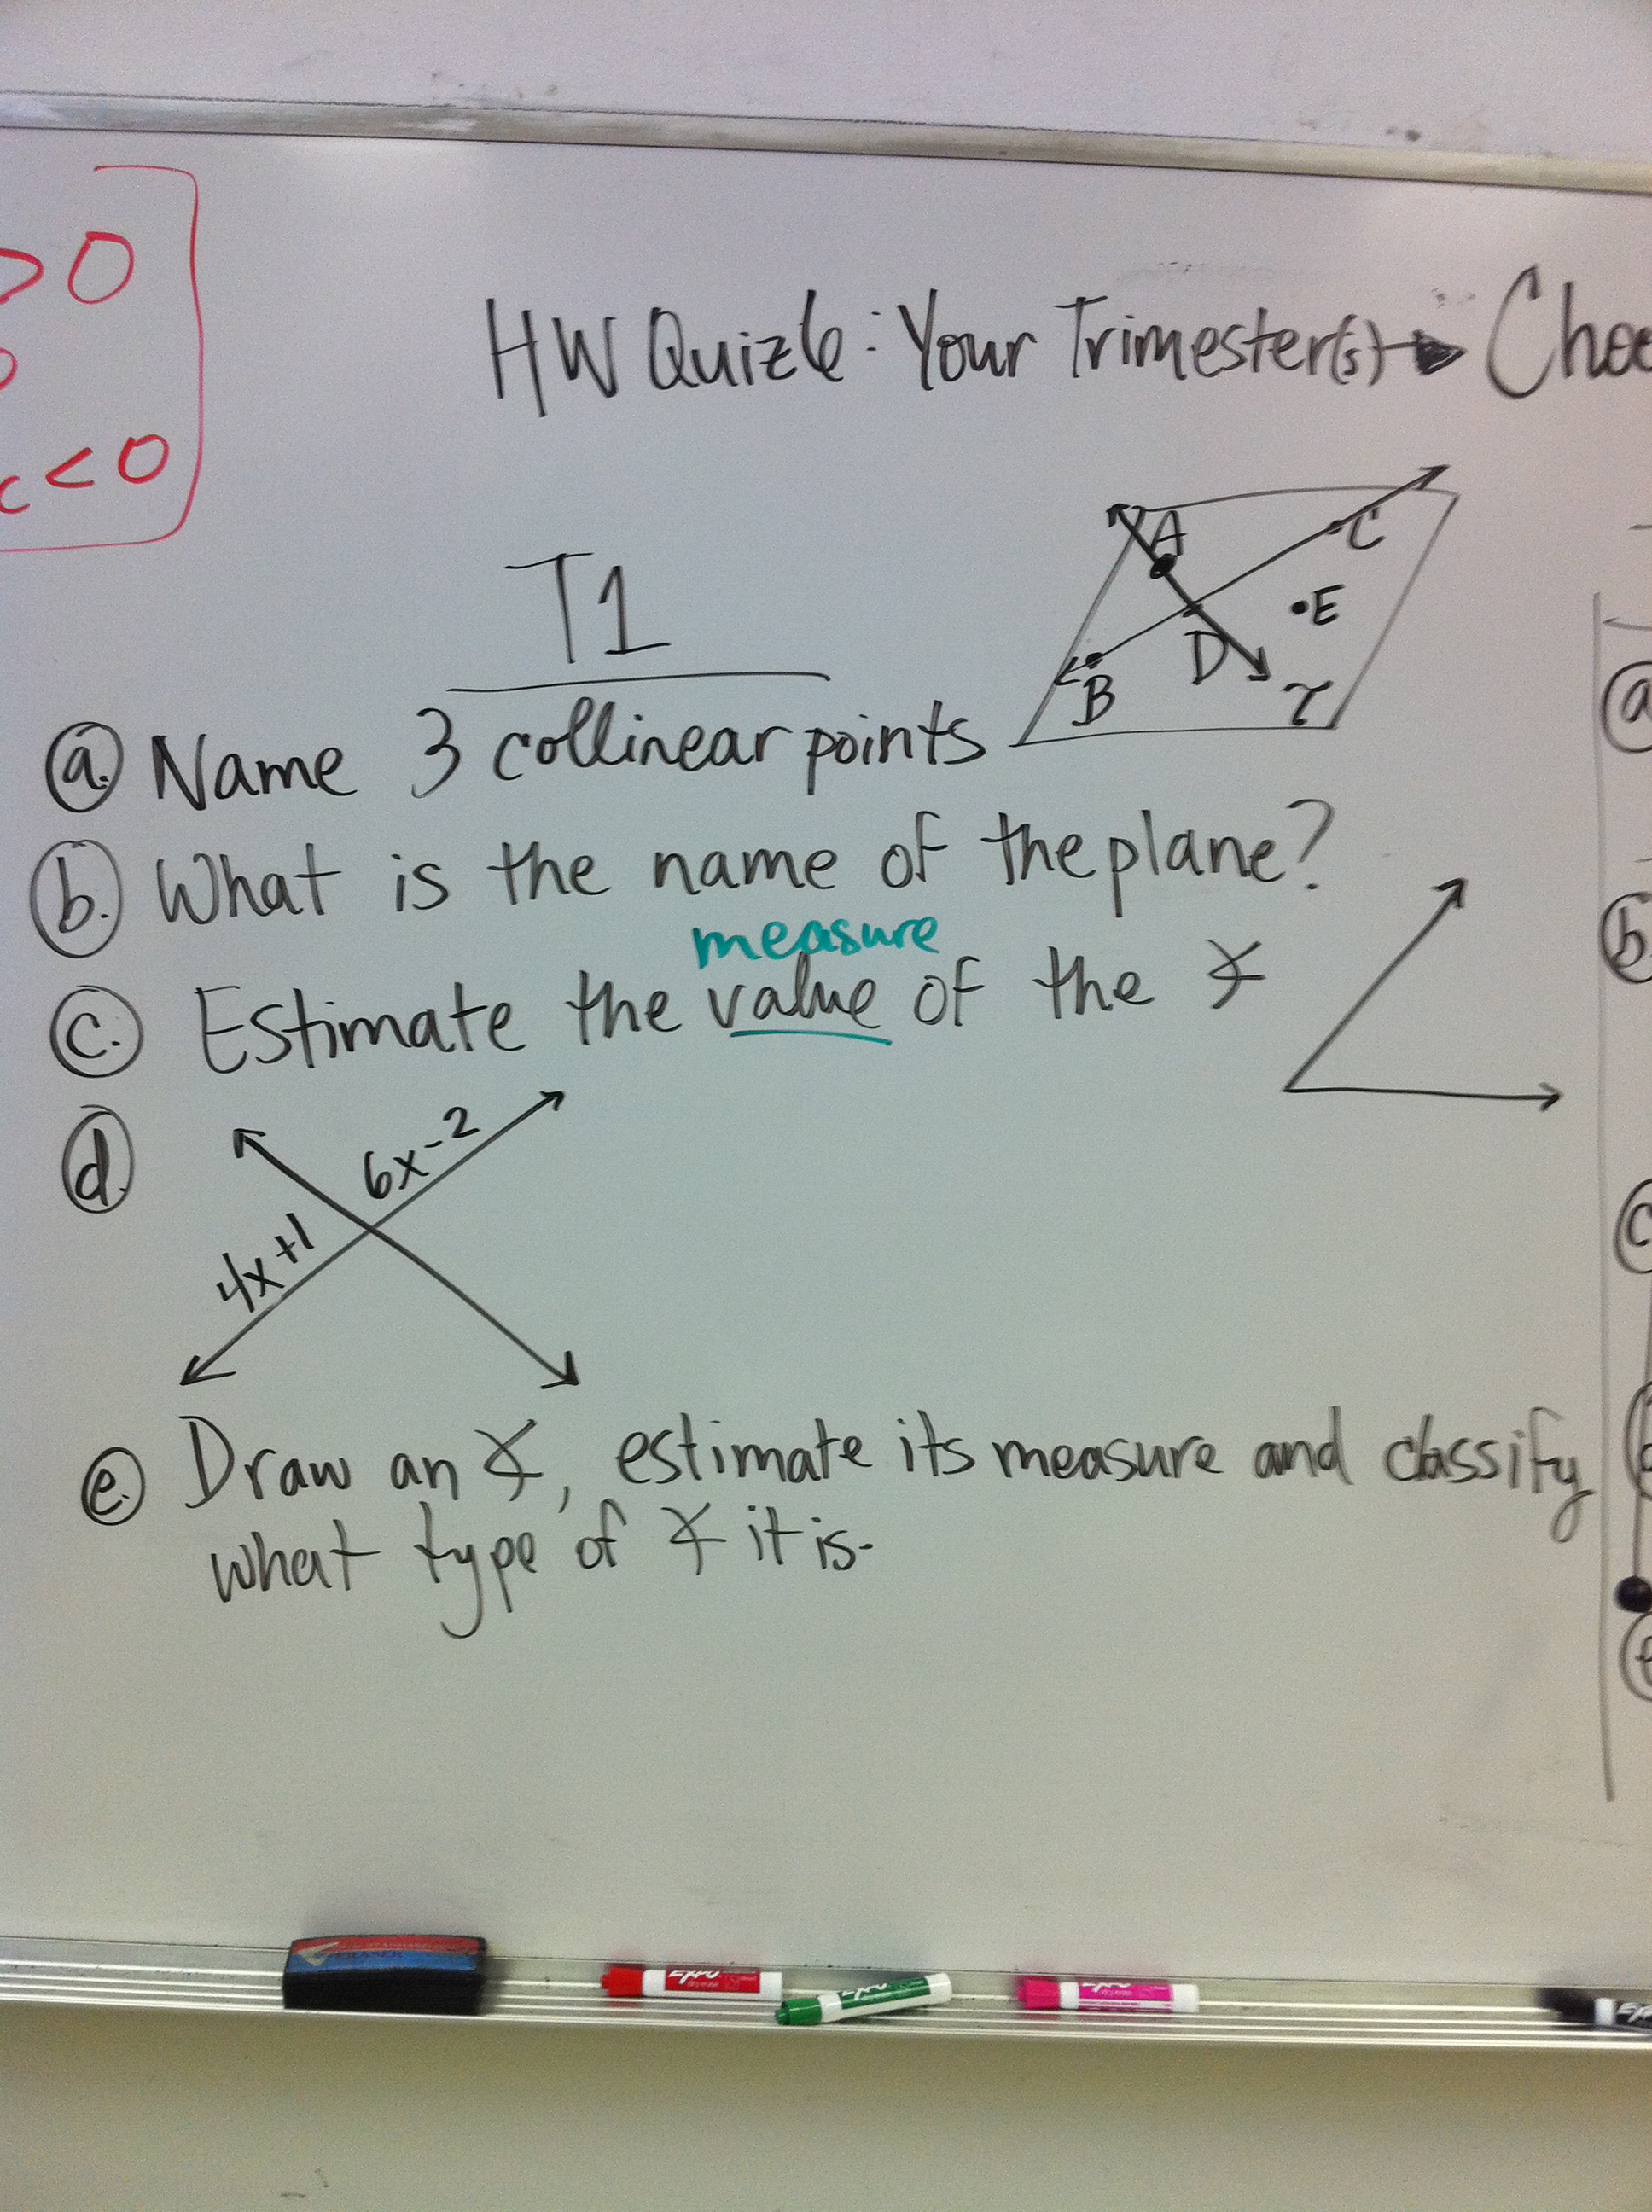 > 0
c < 0
HW Quiz 6: Your Trimester(s) → Choo
T1
A
C
E
D
B
τ
a. Name 3 collinear points
b. What is the name of the plane?
measure
c. Estimate the value of the ∡
d.
6x-2
4x+1
e. Draw an ∡, estimate its measure and classify
what type of ∡ it is.
a
b
c
EXPO
EXPO
EXPO